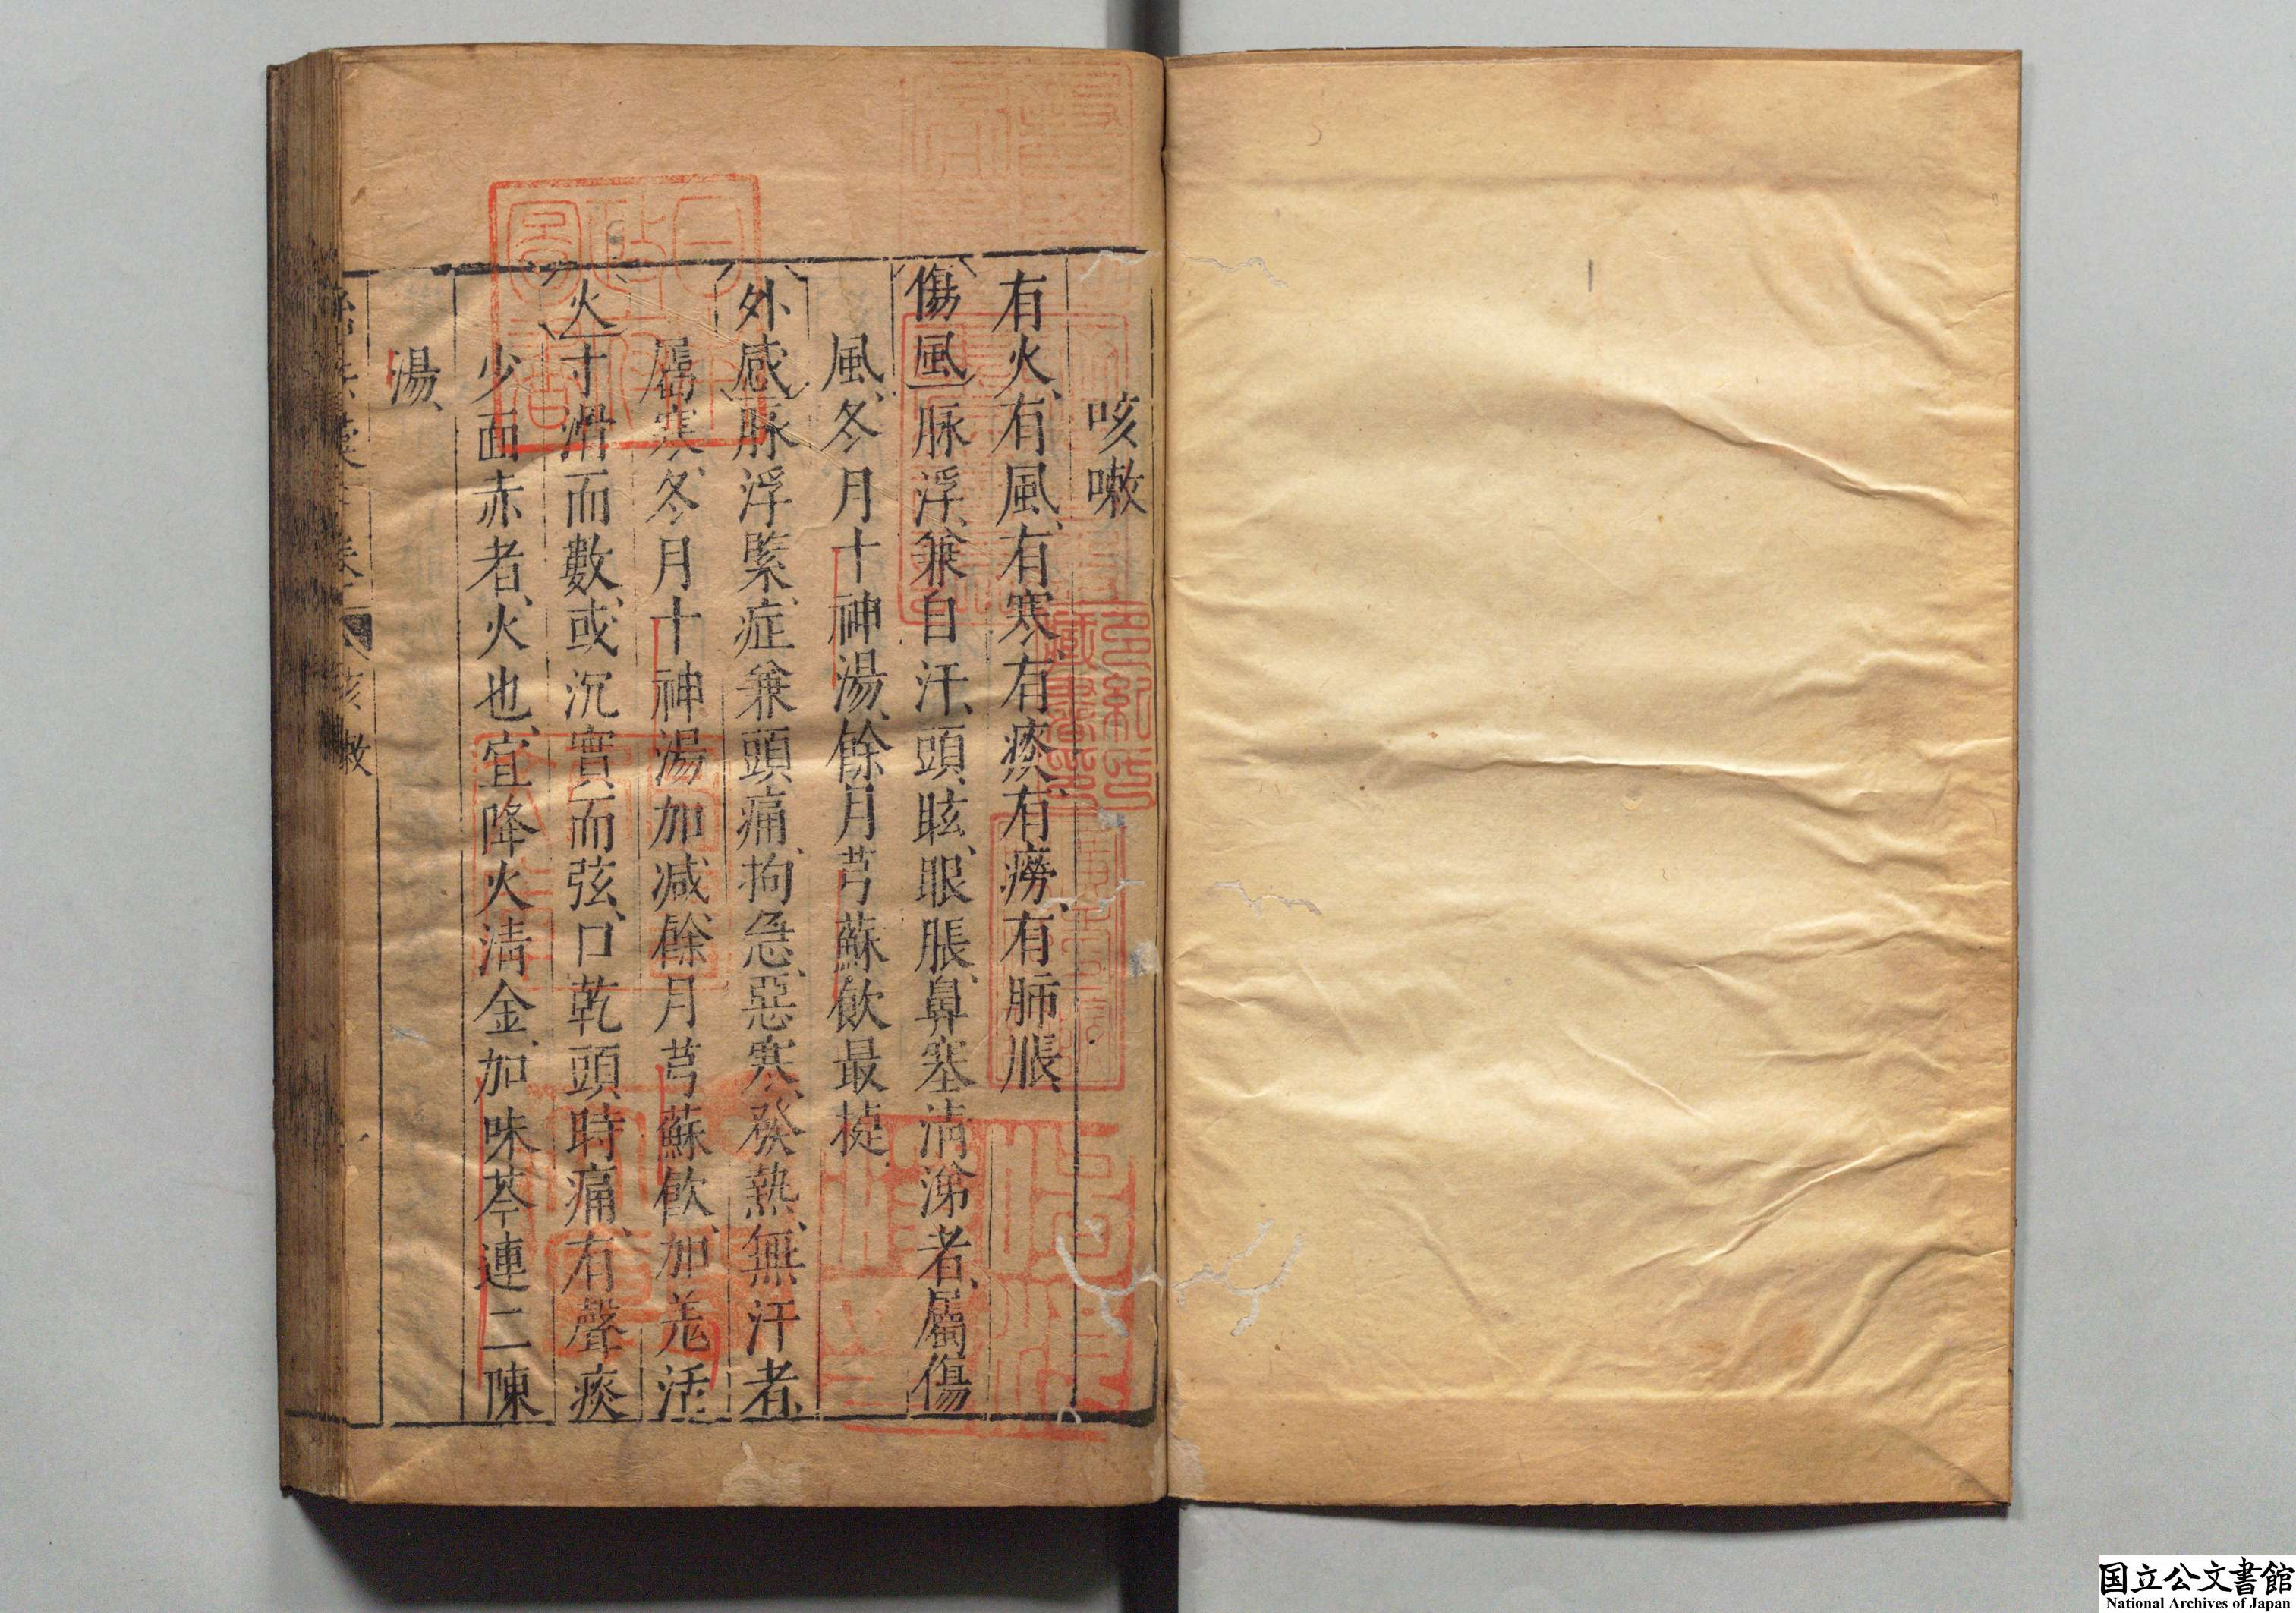 咳嗽
有火、有風、有寒、有痰、有癆、有肺脹、
傷風脉浮、兼自汗、頭眩、眼脹、鼻塞清涕者、屬傷
風、冬月十神湯、餘月芎蘇飲最㨗、
外感脉浮緊、症兼頭痛、拘急、惡寒、發熱、無汗者、
屬寒、冬月十神湯加减、餘月芎蘇飲、加羌活
火寸滑而數、或沉實而弦、口乾頭時痛、有聲痰
少面赤者、火也、宜降火清金、加味芩連二陳
湯、
咳嗽
多紀氏
藏書印
国立公文書館
National Archives of Japan